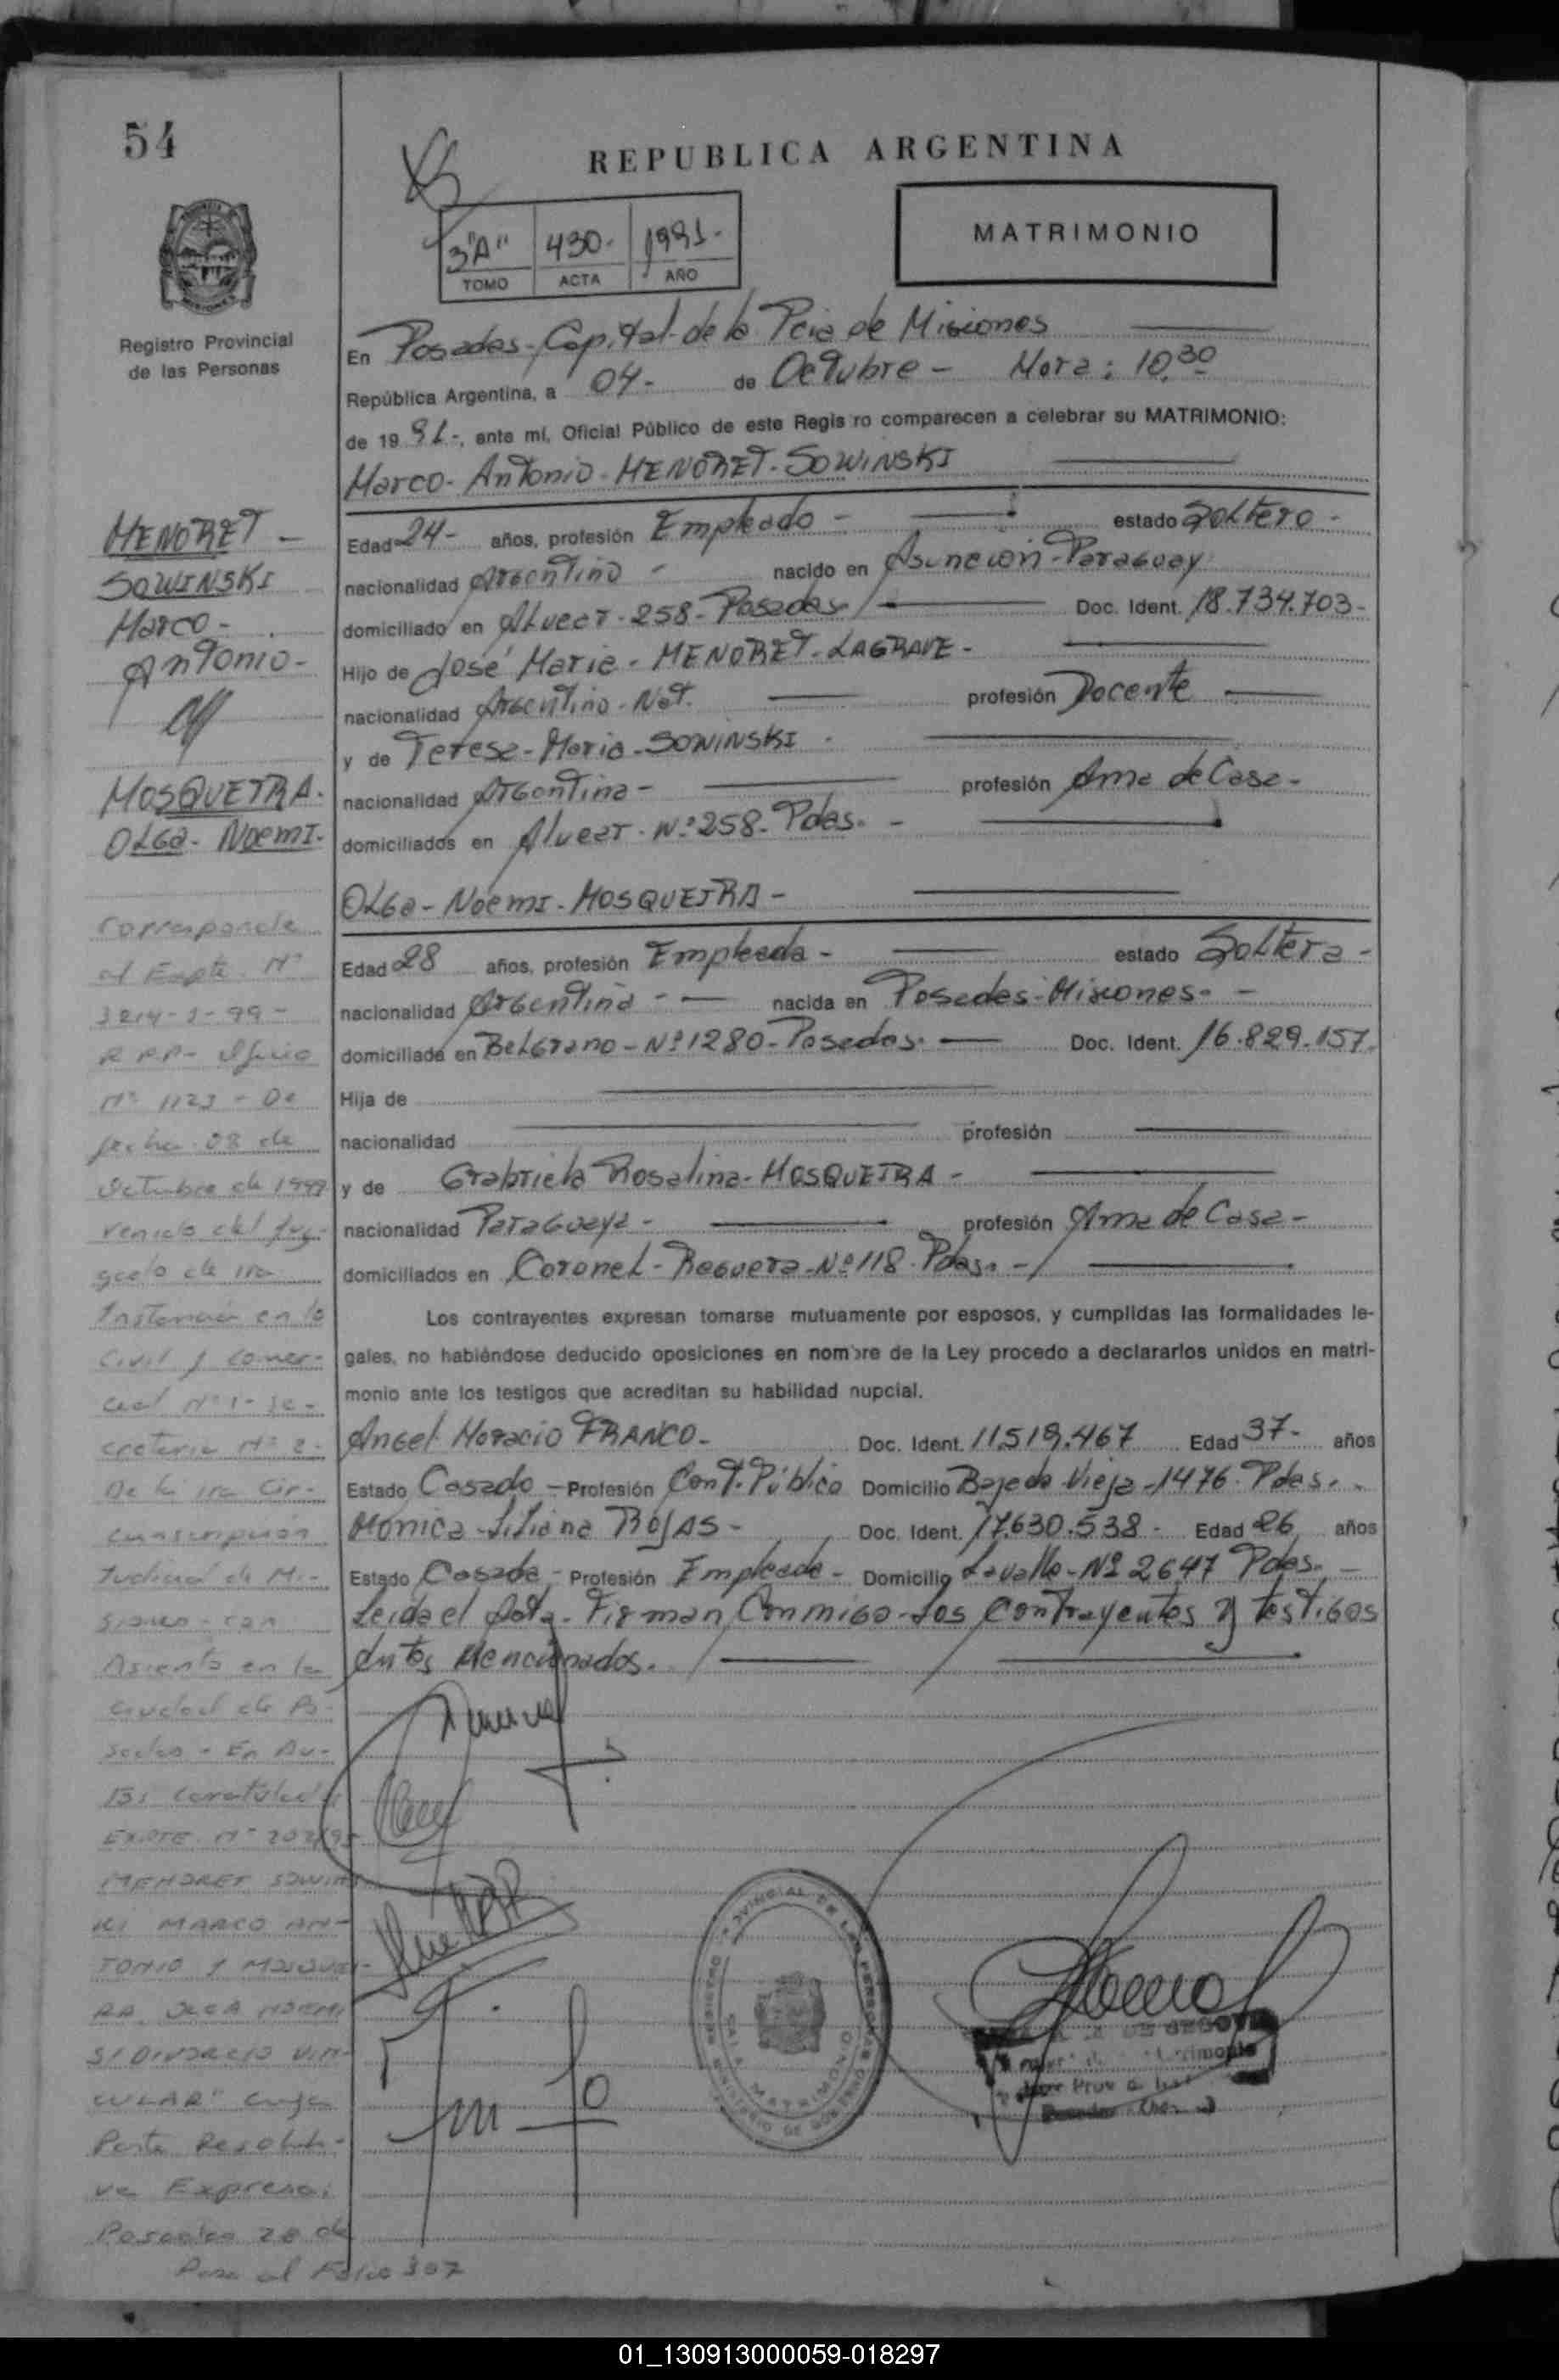 54
REPUBLICA ARGENTINA
3"A" 430- 1991-
TOMO ACTA AÑO
MATRIMONIO
Registro Provincial
de las Personas
En Posadas-Capital-de la Pcia de Misiones
República Argentina, a 04- de Octubre - Hora: 10,30
de 19 91-, ante mí, Oficial Público de este Registro comparecen a celebrar su MATRIMONIO:
Marco-Antonio-MENORET-SOWINSKI
Edad 24- años, profesión Empleado - estado Soltero-
nacionalidad Argentino - nacido en Asunción-Paraguay
domiciliado en Alvear-258-Posadas Doc. Ident. 18.734.703-
Hijo de José María-MENORET-LAGRAVE-
nacionalidad Argentino-Nat. profesión Docente
y de Teresa-María-SOWINSKI
nacionalidad Argentina- profesión Ama de Casa-
domiciliados en Alvear-Nº258-Pdas.-
Olga-Noemi-MOSQUEIRA-
Edad 28 años, profesión Empleada- estado Soltera-
nacionalidad Argentina - nacida en Posadas-Misiones-
domiciliada en Belgrano-Nº1280-Posadas. Doc. Ident. 16.829.157.
Hija de
nacionalidad profesión
y de Grabriela Rosalina-MOSQUEIRA-
nacionalidad Paraguaya- profesión Ama de Casa-
domiciliados en Coronel-Reguera-Nº118-Pdas.-
Los contrayentes expresan tomarse mutuamente por esposos, y cumplidas las formalidades le-
gales, no habiéndose deducido oposiciones en nombre de la Ley procedo a declararlos unidos en matri-
monio ante los testigos que acreditan su habilidad nupcial.
Angel Horacio FRANCO- Doc. Ident. 11.519.467 Edad 37- años
Estado Casado - Profesión Cont. Público Domicilio Bajada Vieja-1476-Pdas.-
Monica-Liliana ROJAS- Doc. Ident. 17.630.538- Edad 26 años
Estado Casada - Profesión Empleada- Domicilio Lavalle-Nº 2647 Pdas.-
Leida el Acta-Firman Conmigo-Los Contrayentes y testigos
Antes Mencionados.
MENORET -
SOWINSKI
Marco-
Antonio-
MOSQUEIRA.
Olga-Noemi-
Corresponde
al Expte. Nº
3214-J-99-
R.P.P- Oficio
Nº 1123 - De
fecha 08 de
Octubre de 1999
venido del Juz-
gado de 1ra
Instancia en lo
Civil y Comer-
cial Nº1-Se-
cretaria Nº 2-
De la 1ra Cir-
cunscripción
Judicial de Mi-
siones-con
Asiento en la
ciudad de Po-
sadas-En Au-
tos caratulados
EXPTE. Nº 202/95
MENORET SOWINS
KI MARCO AN-
TONIO Y MOSQUEI-
RA OLGA NOEMI
S/ DIVORCIO VIN-
CULAR" cuya
Parte Resoluti-
va Expresa:
Posadas 28 de
Pasa al Folio 307
REGISTRO PROVINCIAL DE LAS PERSONAS
MATRIMONIO
MINISTERIO DE GOBIERNO
01_130913000059-018297